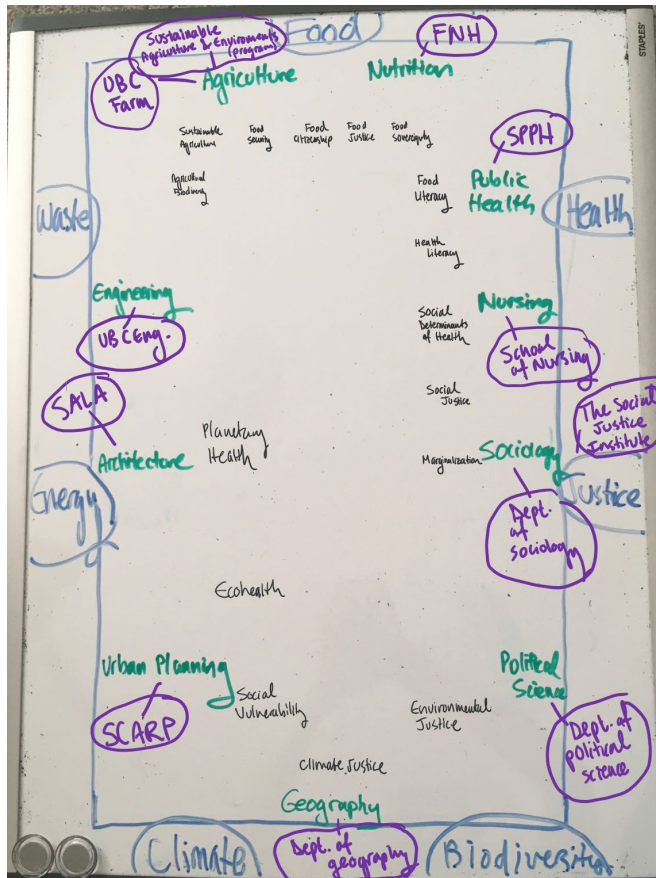 Sustainable
Agriculture & Environments
(program)
Food
FNH
UBC
Farm
Agriculture
Nutrition
STAPLES
SPPH
Sustainable
Agriculture
Food
Security
Food
Citizenship
Food
Justice
Food
Sovereignty
Agricultural
Biodiversity
Food
Literacy
Public
Health
Waste
Health
Health
Literacy
Engineering
UBC Eng.
Social
Determinants
of Health
Nursing
School
of Nursing
SALA
Social
Justice
The Social
Justice
Institute
Planetary
Health
Architecture
Marginalization
Sociology
Energy
Justice
Dept.
of
sociology
Ecohealth
Urban Planning
SCARP
Social
Vulnerability
Political
Science
Environmental
Justice
Dept. of
political
science
Climate Justice
Geography
Climate
Dept. of
geography
Biodiversity